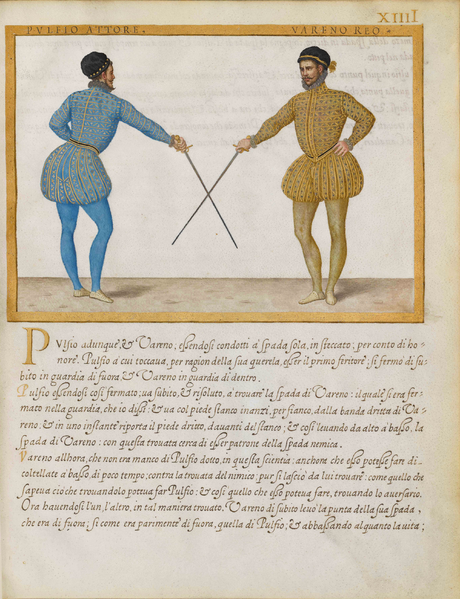 XIIII
PVLFIO ATTORE·
VARENO REO·
PVlfio adunque, & Vareno, essendosi condotti à spada sola, in steccato; per conto di ho-
nore. Pulfio à cui toccaua, per ragion della sua querela, esser il primo feritore; si fermò di su-
bito in guardia di fuora, & Vareno in guardia di dentro.
Pulfio essendosi così fermato; ua sùbito, & risoluto, à trouare la spada di Vareno: il quale si era fer-
mato nella guardia, che io dissi: & ua col piede stanco inanzi, per fianco, dalla banda dritta di Va-
reno: & in uno instante riporta il piede dritto, dauanti del stanco; & così leuando da alto à basso, la
spada di Vareno: con questa trouata cerca di esser patrone della spada nemica.
Vareno allhora, che non era manco di Pulfio dotto, in questa scientia; anchora che esso potesse fare di-
coltellate à basso, di poco tempo; contra la trouata del nimico; pur si lasciò da lui trouare: come quello che
sapeua ciò che trouandolo pottua far Pulfio: & così quello che esso poteua fare, trouando lo auersario.
Ora hauendosi l'un, l'altro, in tal maniera trouato. Vareno di subito leuò la punta della sua spada,
che era di fuora; si come era parimente di fuora, quella di Pulfio; & abbassando alquanto la uita;